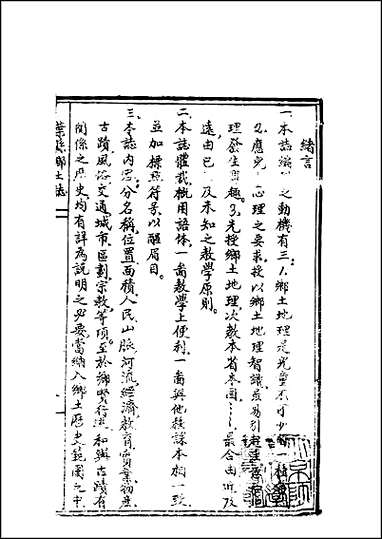 緒言
一本誌編 之動機有三：1.鄉土地理是兒童不可少的一種
2.應兒 心理之要求。授以鄉土地理智識最易引起
理發生興趣。3.先授鄉土地理次教本省本國……最合由近及
遠由已 及未知之教學原則。
二、本誌體裁概用語体一啚教學上便利一啚與他種課本相一致
並加標點符號以醒眉目。
三、本誌内容分名稱位置面積人民山脈河流經濟教育實業物產
古蹟風俗交通城市區劃宗教等項。至於鄉賢行述和與古蹟有
關係之歷史均有詳為說明之必要當納入鄉土歷史範圍之中
葉縣鄉土誌